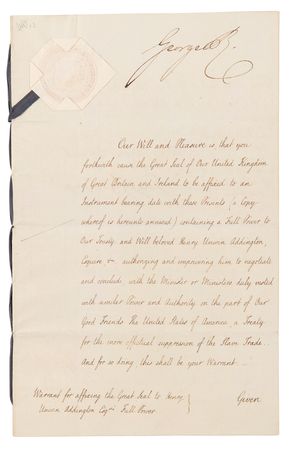 George R.
Our Will and Pleasure is, that you
forthwith cause the Great Seal of Our United Kingdom
of Great Britain and Ireland to be affixed to an
Instrument bearing date with these Presents (a Copy
whereof is hereunto annexed) containing a Full Power to
Our Trusty and Well beloved Henry Unwin Addington,
Esquire &c authorizing and empowering him to negotiate
and conclude with the Minister or Ministers duly vested
with similar Power and Authority on the part of Our
Good Friends The United States of America, a Treaty
for the more effectual suppression of the Slave Trade.
And for so doing this shall be your Warrant.
Given
Warrant for affixing the Great Seal to Henry
Unwin Addington Esqre Full Power.